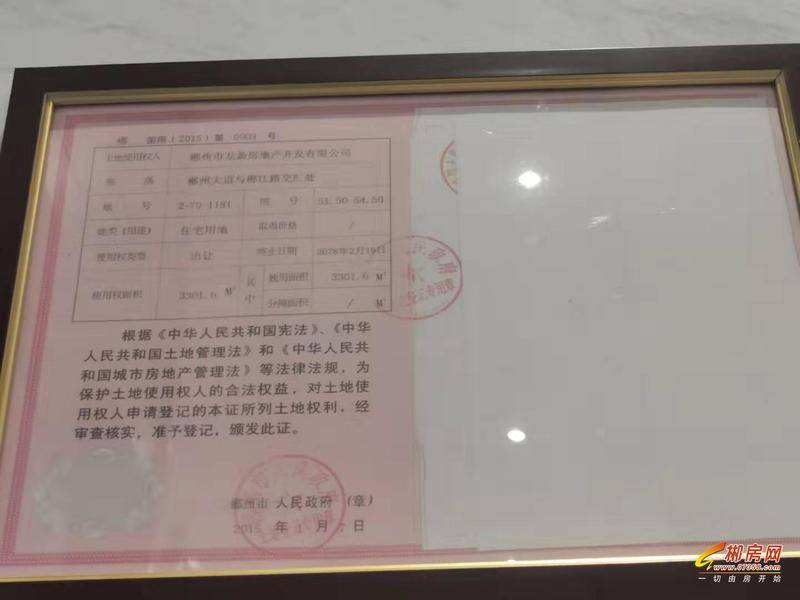 郴 国用(2015)第 0003 号
土地使用权人 郴州市龙新房地产开发有限公司
座 落 郴州大道与郴江路交汇处
地 号 2-70-1181 图 号 51.50-54.50
地类(用途) 住宅用地 取得价格 /
使用权类型 出让 终止日期 2078年2月19日
使用权面积 3301.6 M² 其中 独用面积 3301.6 M²
分摊面积 / M²
根据《中华人民共和国宪法》、《中华
人民共和国土地管理法》和《中华人民共
和国城市房地产管理法》等法律法规，为
保护土地使用权人的合法权益，对土地使
用权人申请登记的本证所列土地权利，经
审查核实，准予登记，颁发此证。
郴州市 人民政府 (章)
2015 年 1 月 7 日
郴房网
www.07350.com
一切由房开始